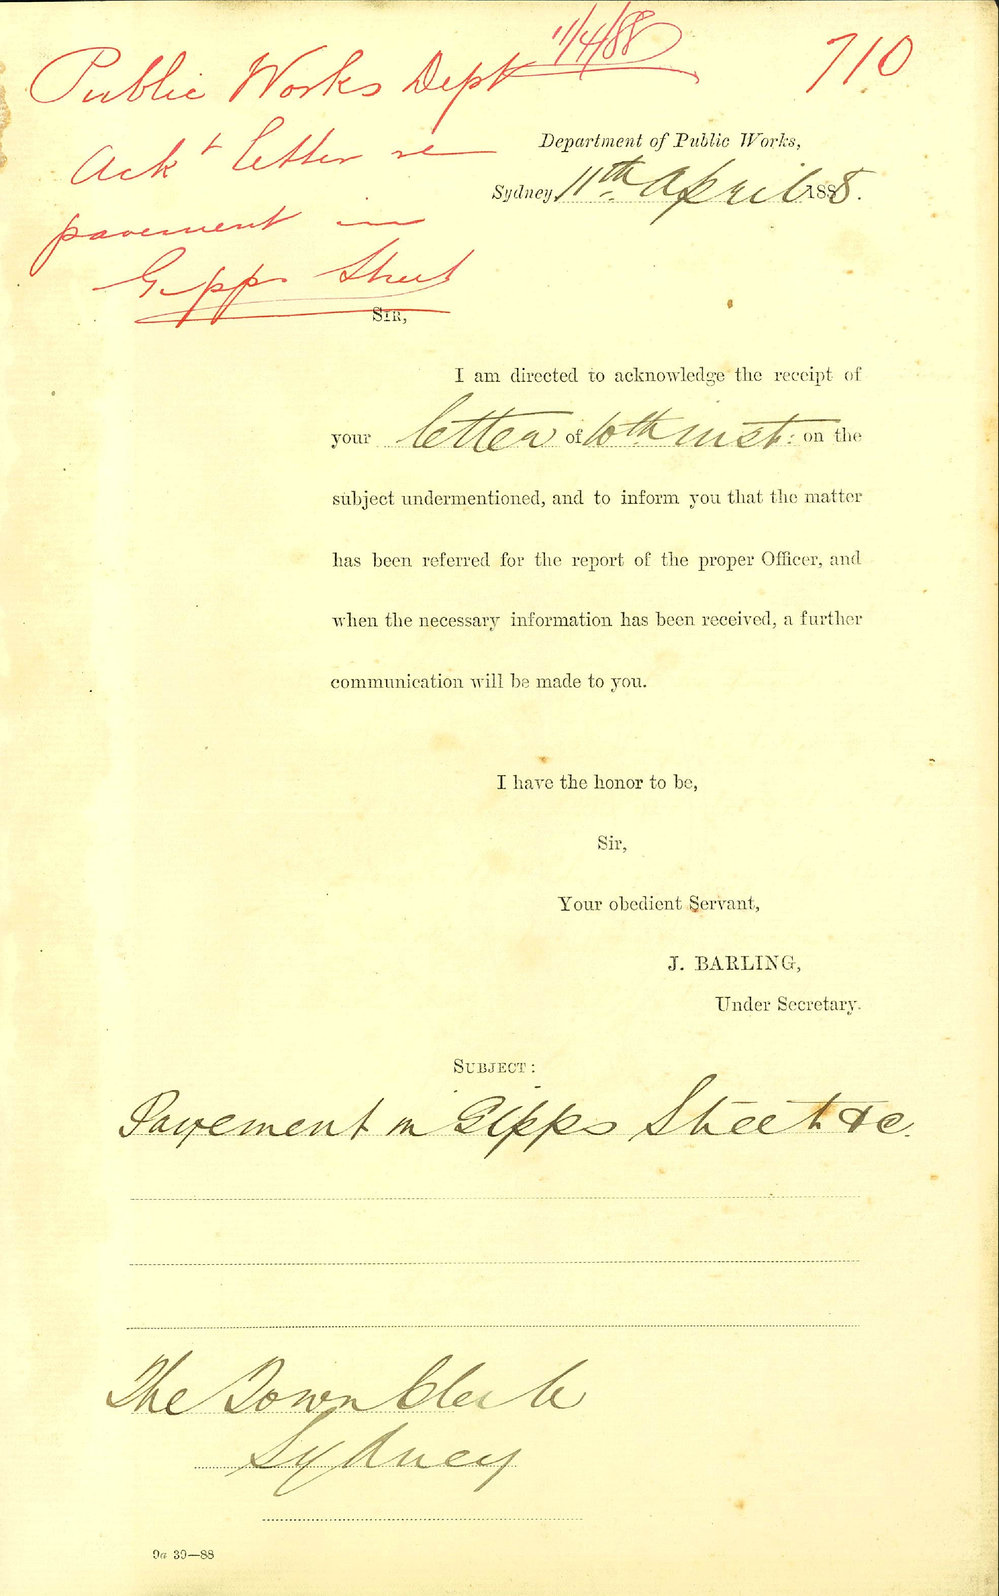 Public Works Dept 11/4/88
710
Ackt letter re
pavement in
Gipps Street
Department of Public Works,
Sydney, 11th April 1888.
SIR,
I am directed to acknowledge the receipt of
your letter of 10th inst: on the
subject undermentioned, and to inform you that the matter
has been referred for the report of the proper Officer, and
when the necessary information has been received, a further
communication will be made to you.
I have the honor to be,
Sir,
Your obedient Servant,
J. BARLING,
Under Secretary.
SUBJECT:
Pavement in Gipps Street &c.
The Town Clerk
Sydney
9a 39—88